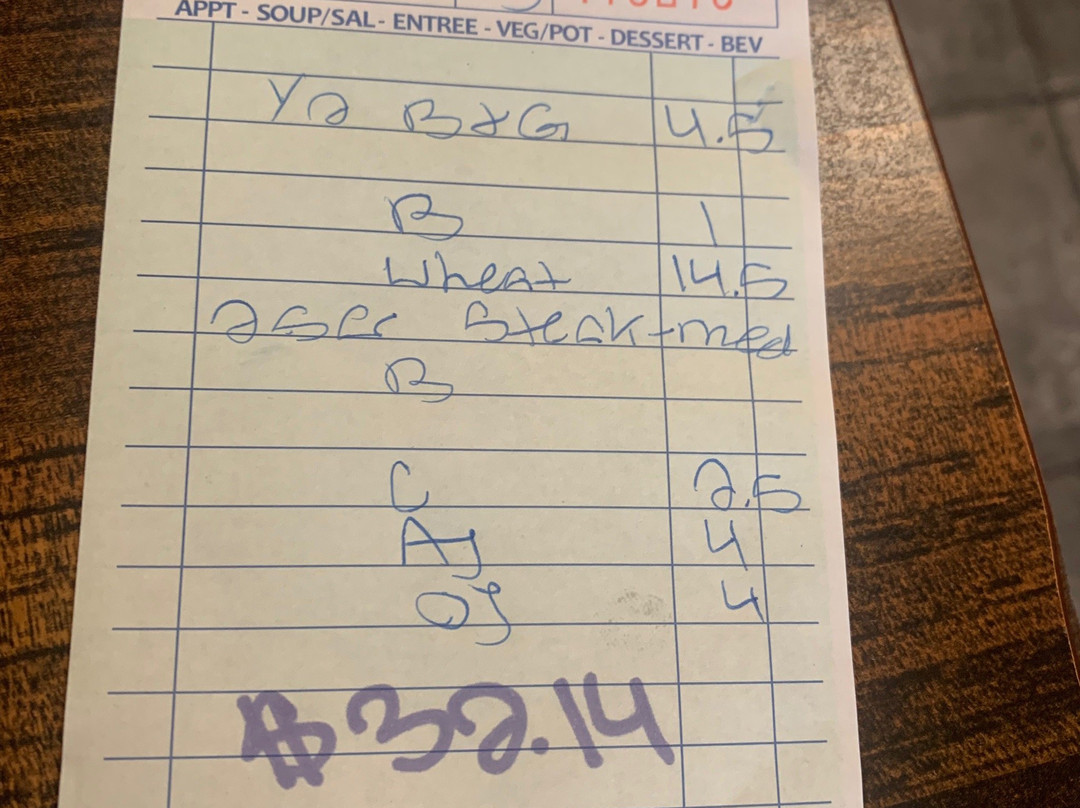 APPT - SOUP/SAL - ENTREE - VEG/POT - DESSERT - BEV
1/2 B&G 4.5
B 1
Wheat 14.5
Steak-med
B
C 2.5
AJ 4
OJ 4
$32.14